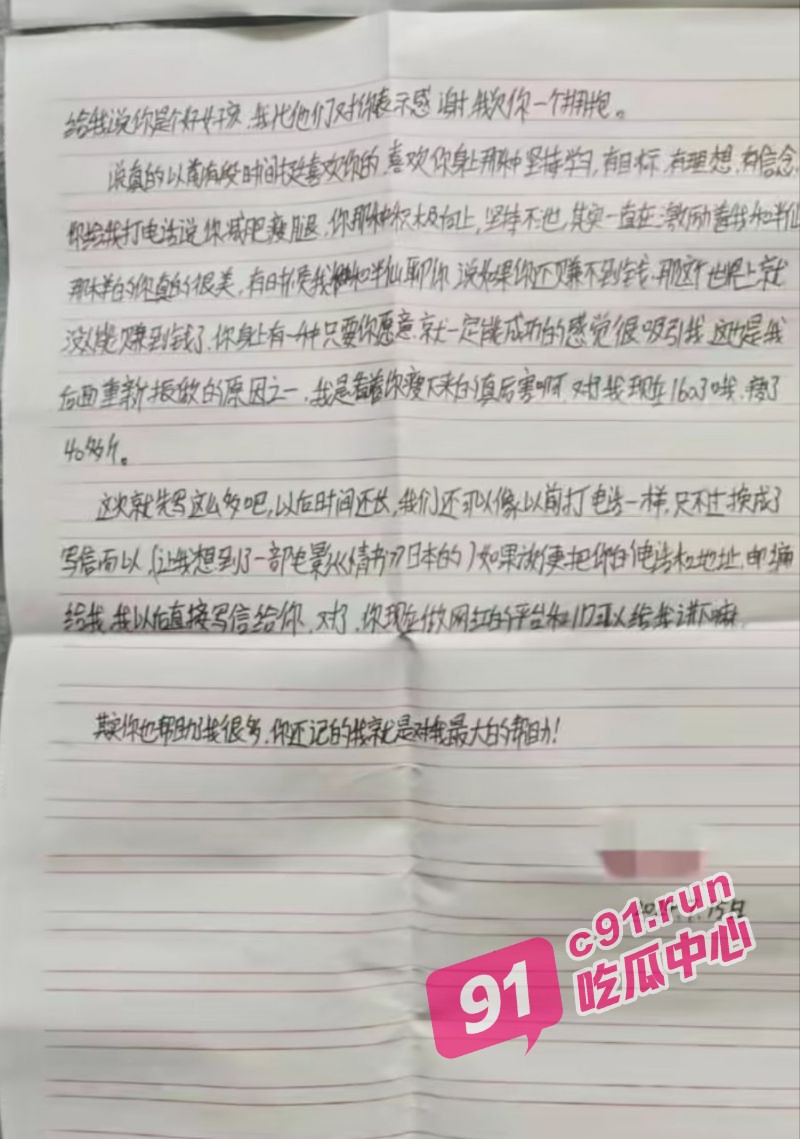 给我说你是个好女孩，我代他们对你表示感谢，我欠你一个拥抱。
说真的以前有段时间挺喜欢你的，喜欢你身上那种坚持学习，有目标，有理想，有信念，
你给我打电话说你减肥瘦腿，你那种积极向上，坚持不
其实一直在激励着我和半仙
那样的你真的很美，有时候我和半仙聊你，说如果你还赚不到钱，那这个世界上就
没人能赚到钱了，你身上有一种只要你愿意，就一定能成功的感觉很吸引我，这也是我
后面重新振做的原因之一，我是看着你瘦下来的真厉害啊，对我现在160了哦，瘦了
40多斤。
这次就先写这么多吧，以后时间还长，我们还可以像以前打电话一样，只不过换成了
写信而以（让我想到了一部电影《情书》日本的）如果方便把你的电话和地址，邮编
给我，我以后直接写信给你，对了，你现在做网红的平台和ID可以给我讲下嘛
其实你也帮助了我很多，你还记的我就是对我最大的帮助！
15日
91
c91.run
吃瓜中心